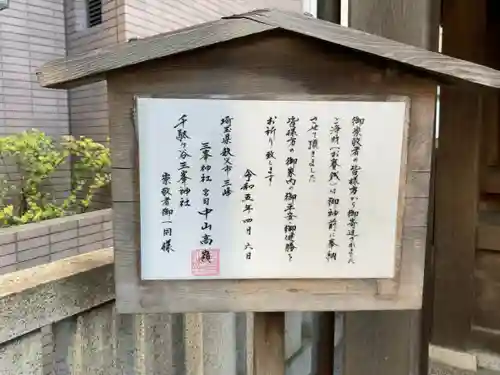 御崇敬者の皆様方から御寄進されたご浄財「お賽銭」は御神前に奉納
させて頂きました
皆様方の御家内の御平安・御健勝を
お祈り致します
令和五年四月六日
埼玉県秩父市三峰
三峯神社 宮司 中山高嶺
千駄ヶ谷三峯神社
崇敬者御一同様